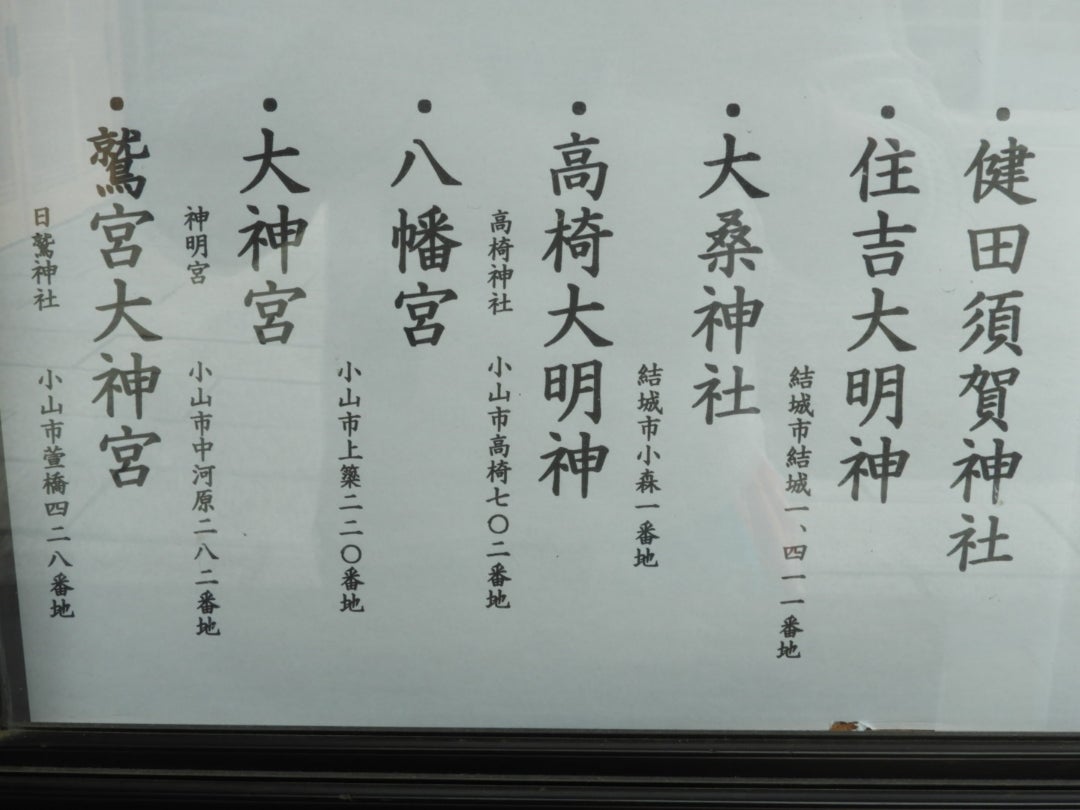 ・健田須賀神社
・住吉大明神
結城市結城一、四一一番地
・大桑神社
結城市小森一番地
・高椅大明神
高椅神社 小山市高椅七〇二番地
・八幡宮
小山市上簗二二〇番地
・大神宮
神明宮 小山市中河原二八二番地
・鷲宮大神宮
日鷲神社 小山市萱橋四二八番地